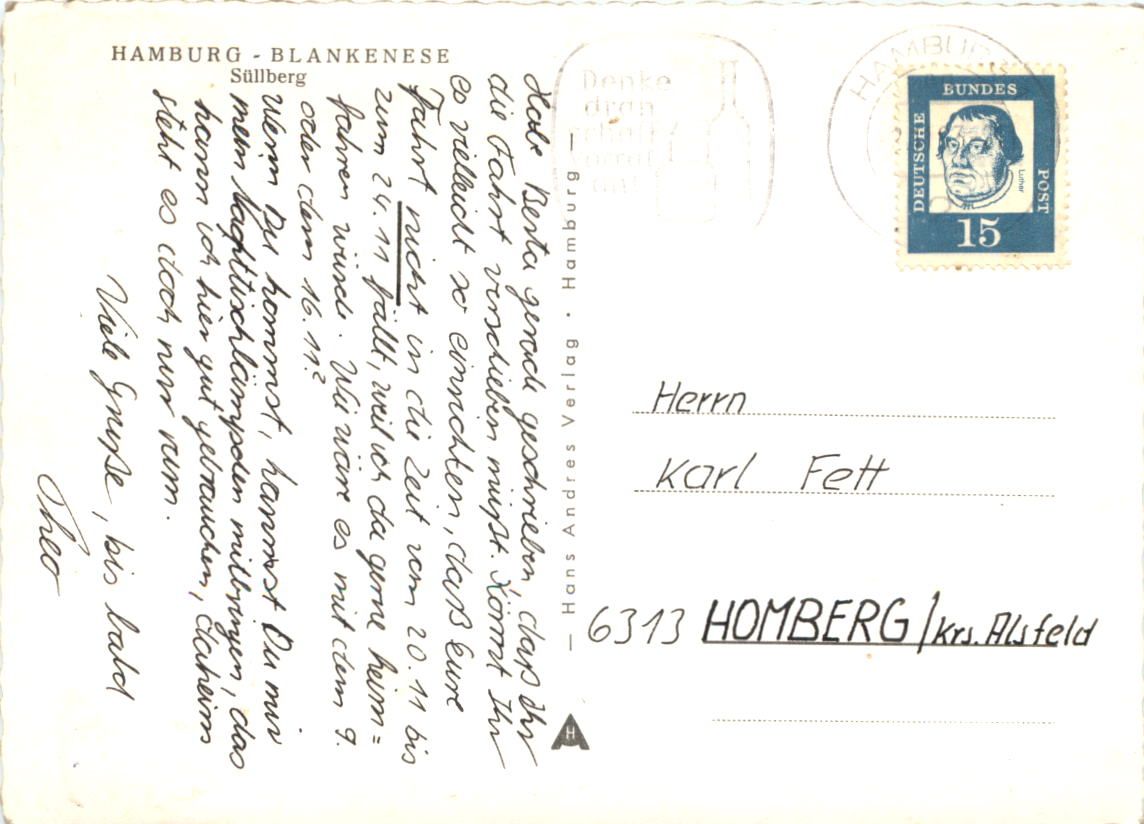 HAMBURG - BLANKENESE
Süllberg
Habe Berta gerade geschrieben, daß Ihr
die Fahrt verschieben müßt. Könnt Ihr
es vielleicht so einrichten, daß Eure
Fahrt nicht in die Zeit vom 20.11 bis
zum 24.11 fällt, weil ich da gerne heim=
fahren würde. Wie wäre es mit dem 9.
oder dem 16.11?
Wenn Du kommst, kannst Du mir
mein Nachttischlämpchen mitbringen, das
kann ich hier gut gebrauchen, daheim
steht es doch nur rum.
Viele Grüße, bis bald
Theo
— Hans Andres Verlag · Hamburg —
AH
Denke
dran
schaff'
Vorrat
an!
HAMBURG
DEUTSCHE
BUNDES
POST
Luther
15
Herrn
Karl Fett
6313 HOMBERG/Krs. Alsfeld